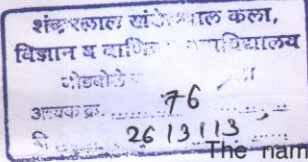 शंकरलाल खंडेलवाल कला,
विज्ञान व वाणिज्य महाविद्यालय
गोडबोले
आवक क्र. 76
दि 26/3/13
The nam